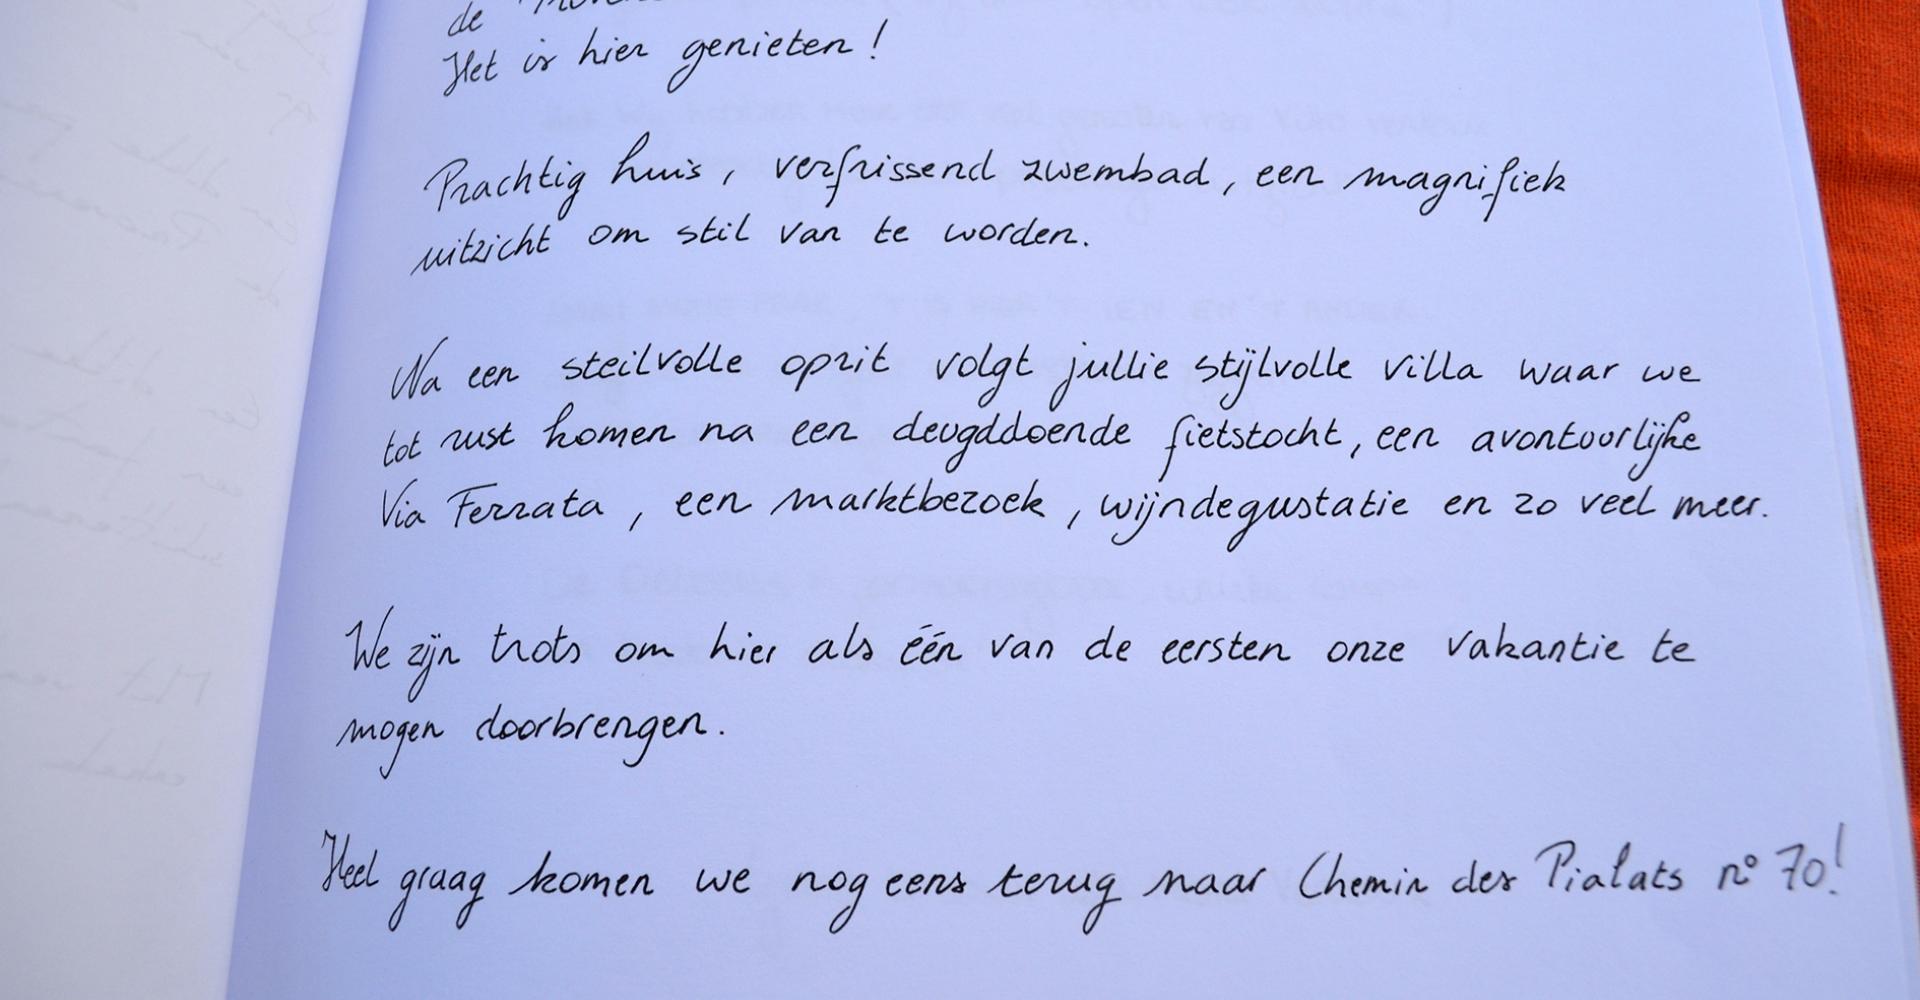 de
Het is hier genieten!
Prachtig huis, verfrissend zwembad, een magnifiek
uitzicht om stil van te worden.
Na een steilvolle oprit volgt jullie stijlvolle villa waar we
tot rust komen na een deugddoende fietstocht, een avontuurlijke
Via Ferrata, een marktbezoek, wijndegustatie en zo veel meer.
We zijn trots om hier als één van de eersten onze vakantie te
mogen doorbrengen.
Heel graag komen we nog eens terug naar Chemin des Pialats n° 70!